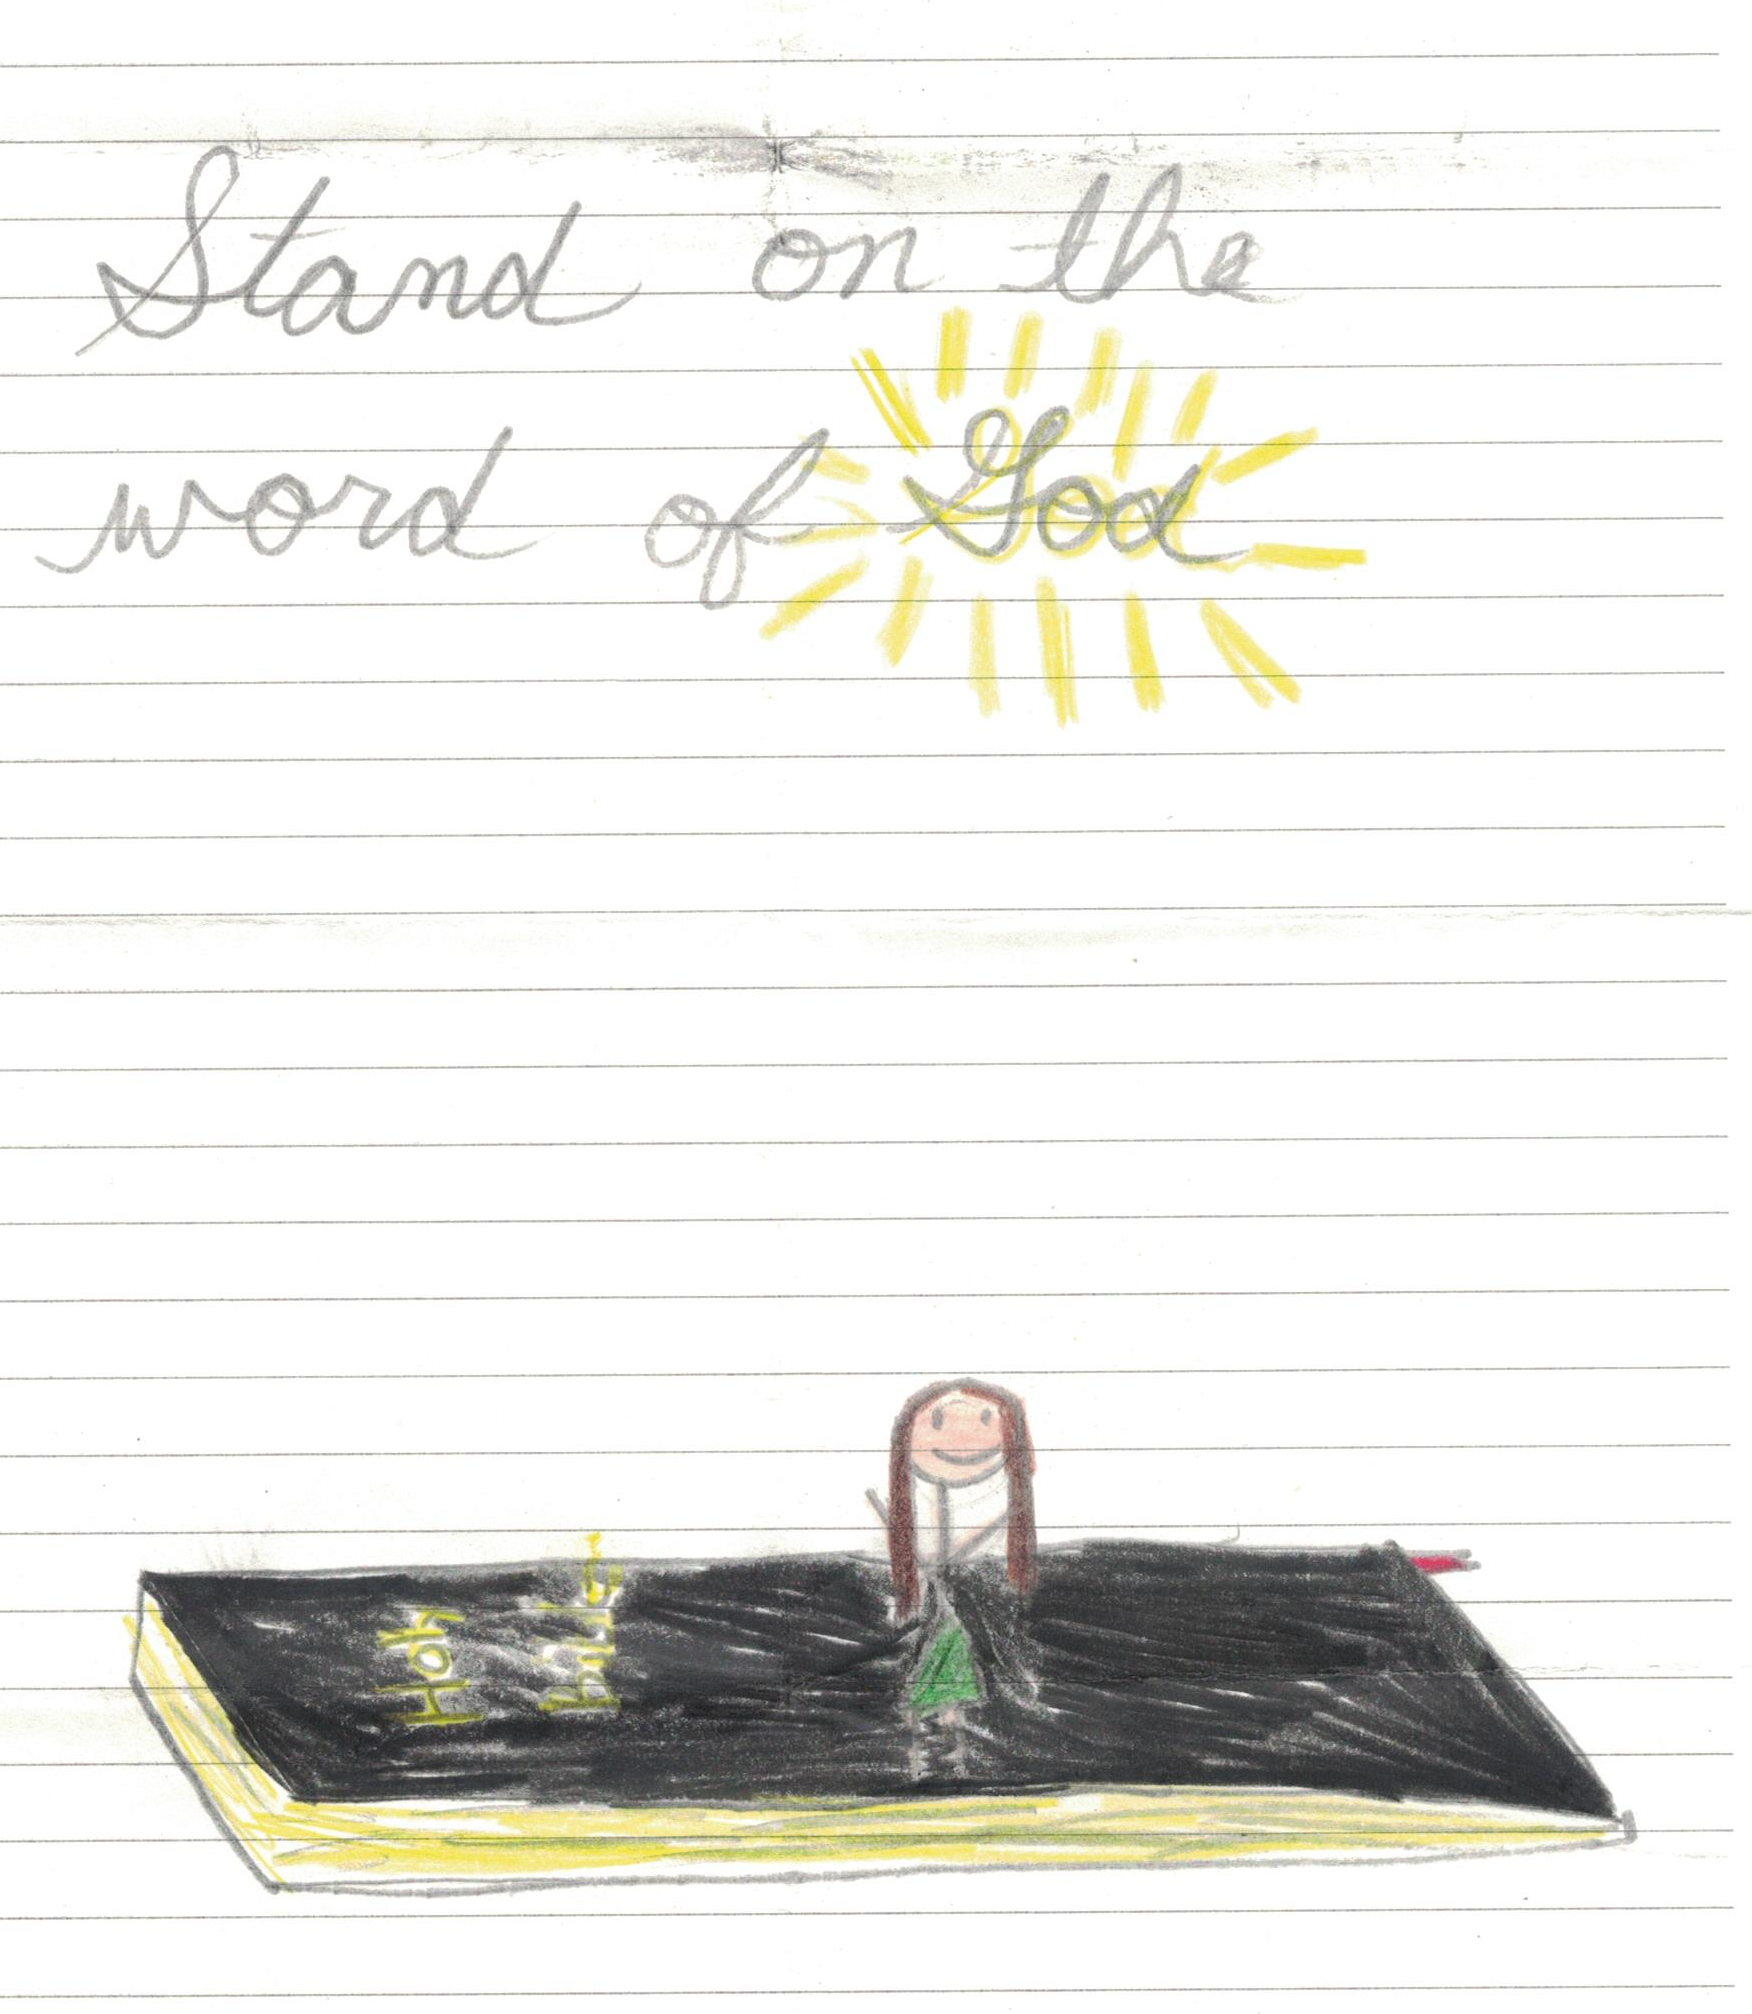 Stand on the
word of God
Holy
bible